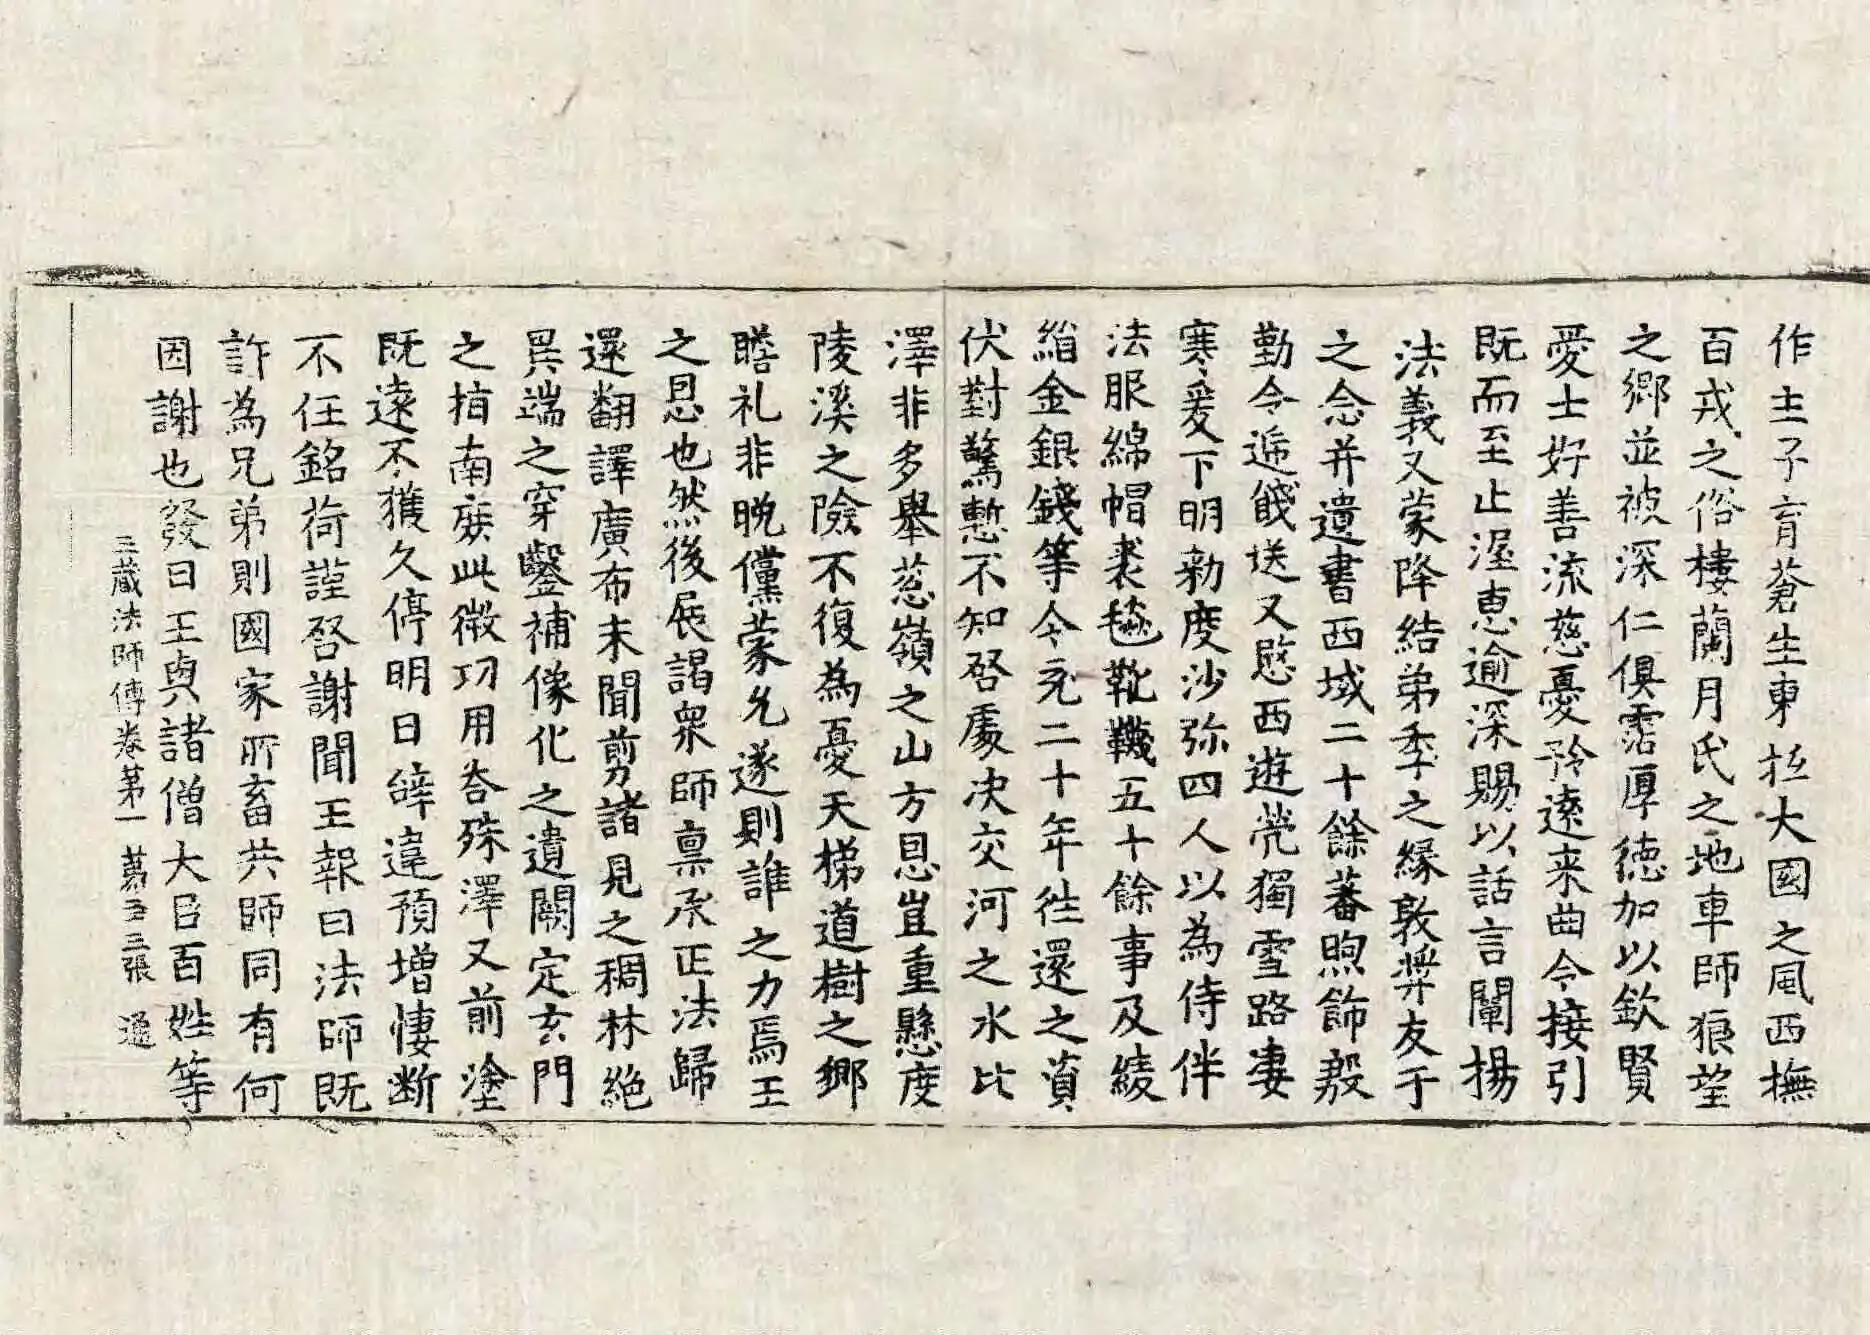 作主子育蒼生東抵大國之風西撫
百戎之俗樓蘭月氏之地車師狼望
之鄉並被深仁俱霑厚德加以欽賢
愛士好善流慈憂矜遠来曲令接引
既而至止渥恵逾深賜以話言闡揚
法義又蒙降結弟季之緣敦奬友于
之念并遺書西域二十餘蕃煦飾殷
勤令遞餞送又愍西遊煢獨雪路凄
寒爰下明勑度沙弥四人以為侍伴
法服綿帽裘毯靴韈五十餘事及綾
絹金銀錢等令充二十年往還之資
伏對驚慙不知啓處决交河之水比
澤非多舉葱嶺之山方恩豈重懸度
陵溪之險不復為憂天梯道樹之鄉
瞻礼非晚儻蒙允遂則誰之力焉王
之恩也然後展謁衆師稟承正法歸
還翻譯廣布未聞剪諸見之稠林絶
異端之穿鑿補像化之遺闕定玄門
之指南庶此微功用荅殊澤又前塗
既遠不獲久停明日辝違預增悽断
不任銘荷謹啓謝聞王報曰法師既
許為兄弟則國家所畜共師同有何
因謝也發日王與諸僧大臣百姓等
三蔵法師傳卷第一 第三三張 通